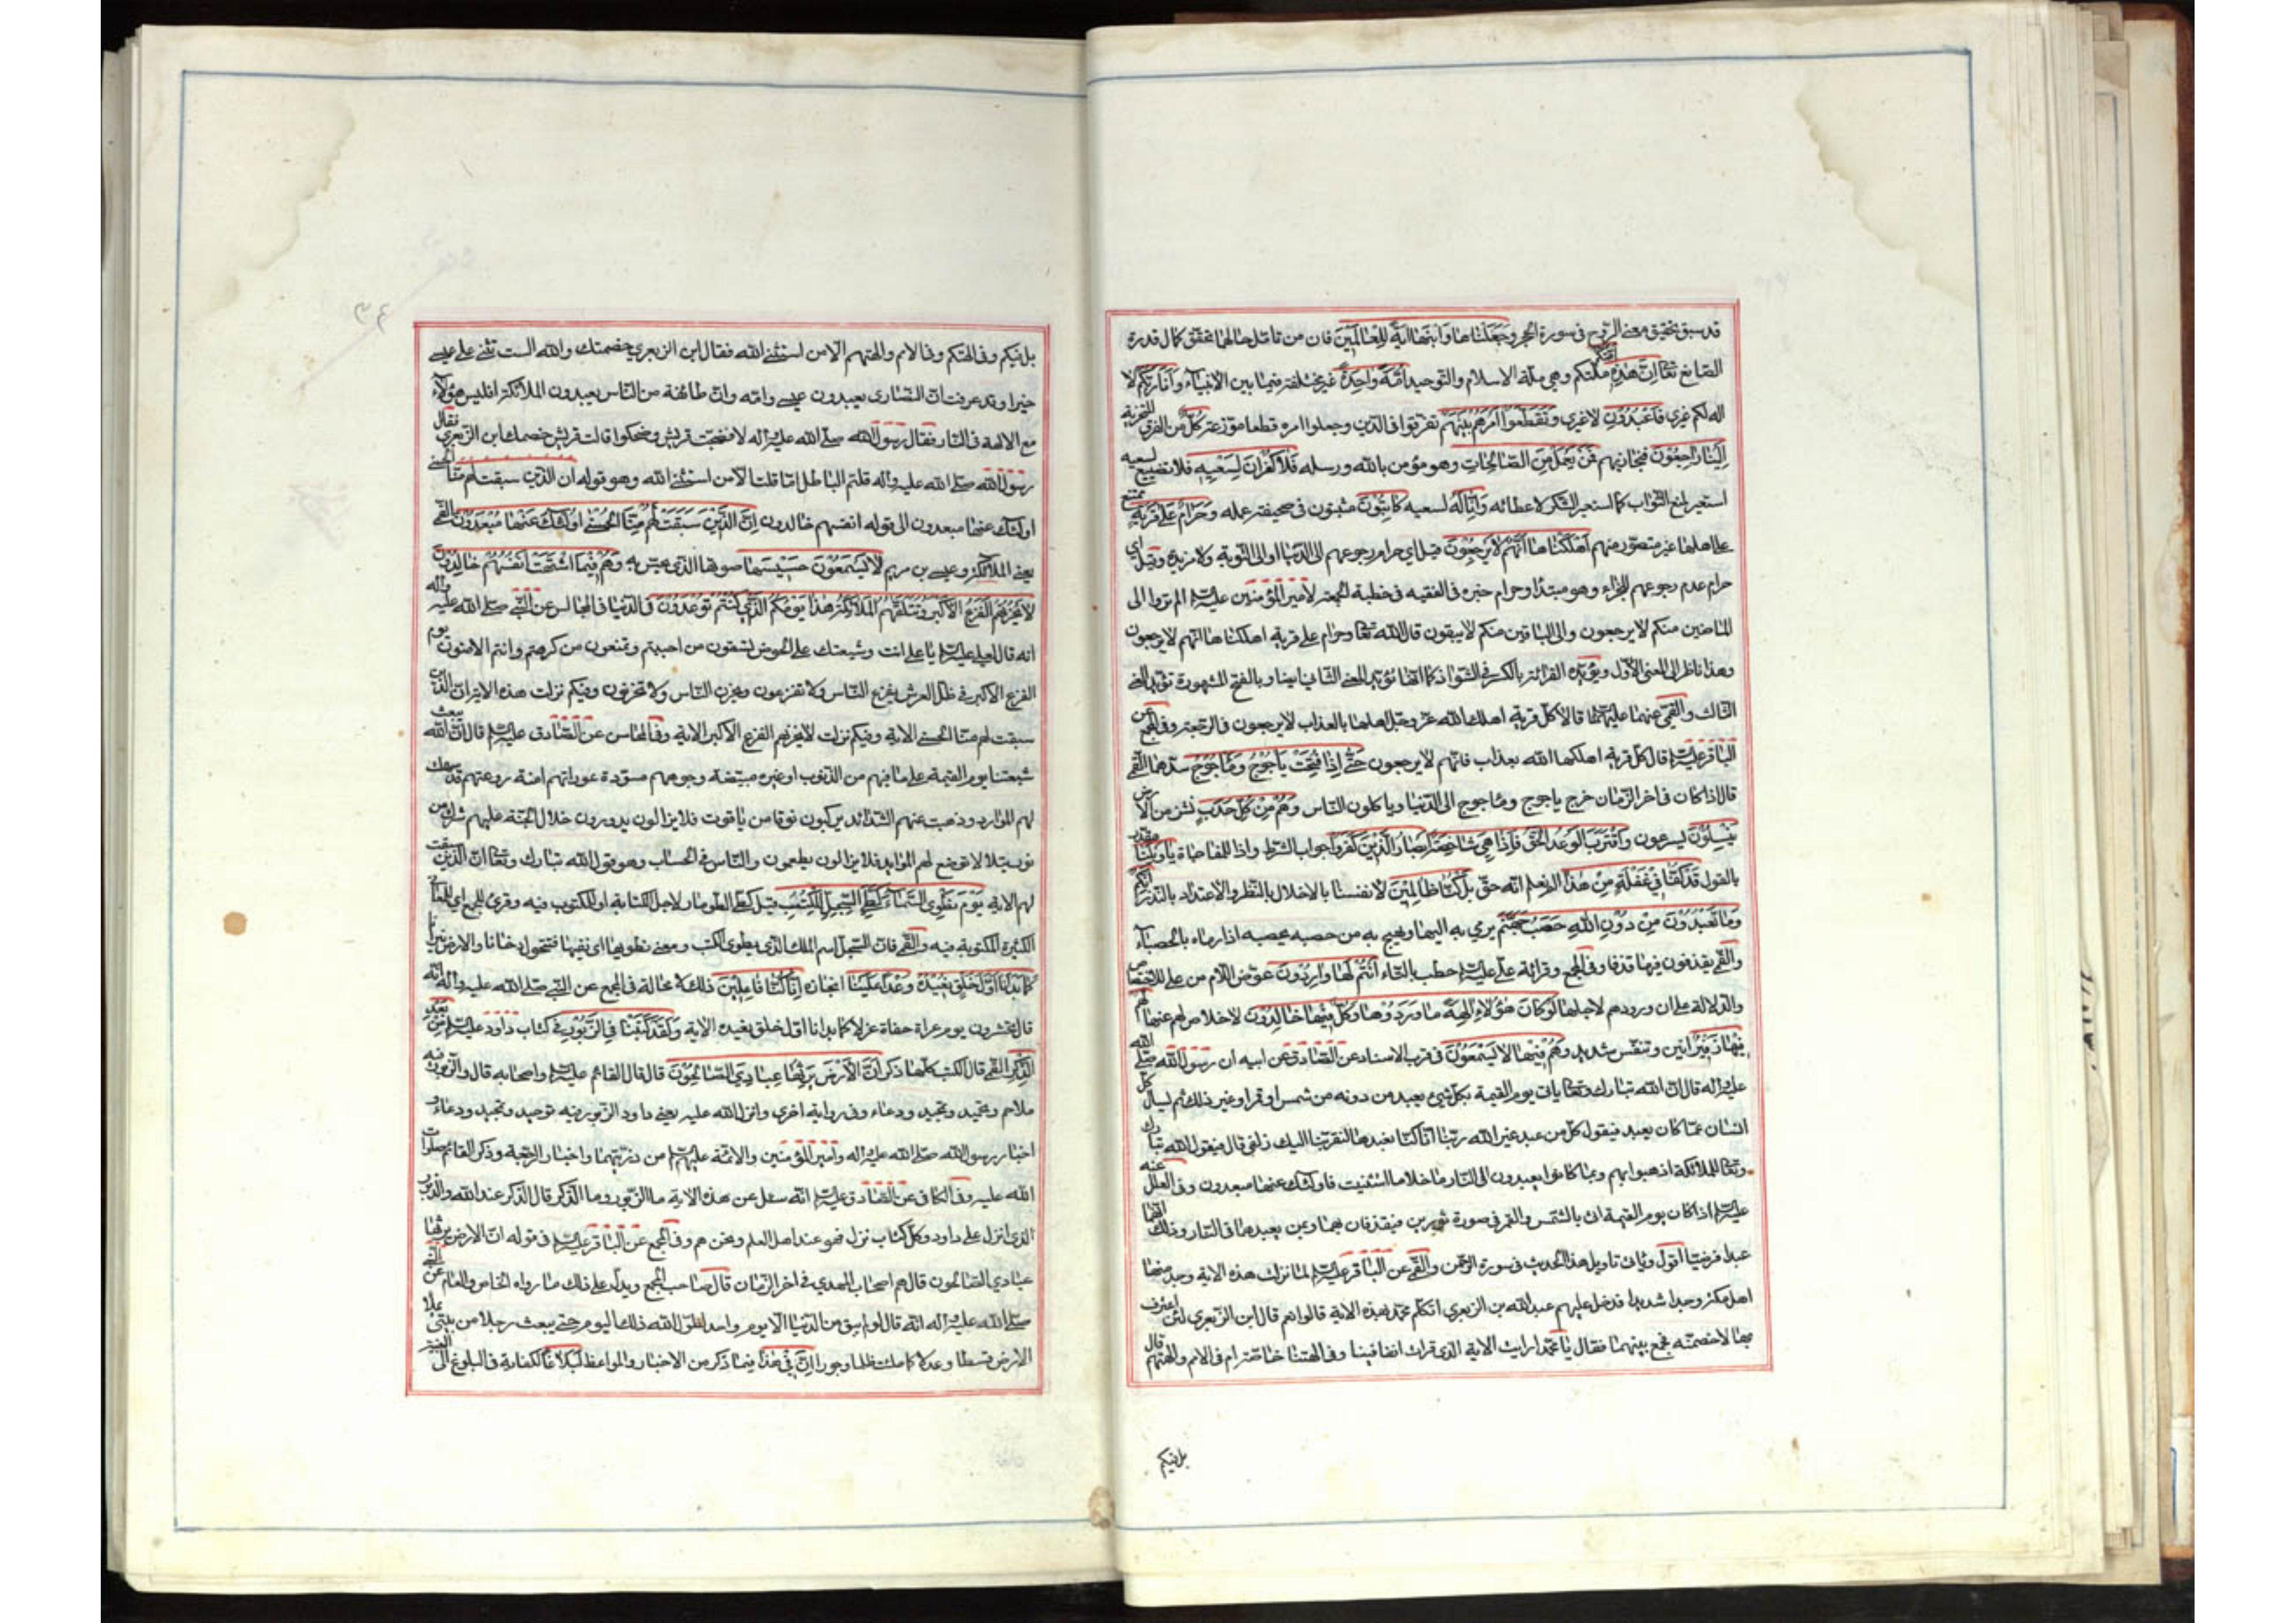 قد سبق تحقيق معنى الروح فى سورة الحجر وَجَعَلْنَاهَا وَابْنَهَا ايَةً لِلْعَالَمِينَ فان من تامل حالهما تحقق كمال قدرة
الصانع تعالى اِنَّ هٰذِهِ اُمَّتُكُم ملتكم وهى ملة الاسلام والتوحيد اُمَّةً واحِدَةً غير مختلفة فيما بين الانبياء وَاَنَا رَبُّكُمْ لا
اله لكم غيرى فَاعْبُدُونِ لا غيرى وَتَقَطَّعُوا اَمْرَهُمْ بَيْنَهُمْ تفرقوا فى الدين وجعلوا امره قطعا موزعة كُلٌّ من الفرق المتحزبة
اِلَيْنَا رَاجِعُونَ فيجازيهم فَمَنْ يَعْمَلْ مِنَ الصَّالِحَاتِ وهو مؤمن بالله ورسله فَلَا كُفْرَانَ لِسَعْيِهِ فلا تضييع لسعيه
استعير لمنع الثواب كما استعير الشكر لاعطائه وَاِنَّا لَهُ لسعيه كَاتِبُونَ مثبتون فى صحيفة عمله وَحَرَامٌ عَلَى قَرْيَةٍ ممتنع
على اهلها غير متصور منهم اَهْلَكْنَاهَا اَنَّهُمْ لَا يَرْجِعُونَ قيل اى حرام رجوعهم الى الدنيا او الى التوبة ولا مزيدة وقيل اى
حرام عدم رجوعهم للجزاء وهو مبتدأ وحرام خبره فى الفقيه فى خطبة الجمعة لامير المؤمنين عليه السلام الم تروا الى
الماضين منكم لا يرجعون والى الباقين منكم لا يبقون قال الله تعالى وحرام على قرية اهلكناها انهم لا يرجعون
وهذا ناظر الى المعنى الاول ويؤيده القرائة بالكسر فى الشواذ كما انها تؤيد المعنى الثانى ايضا وبالفتح المشهورة تؤيد المعنى
الثالث والقمى عنهما عليهما السلام قالا كل قرية اهلك الله عز وجل اهلها بالعذاب لا يرجعون فى الرجعة وفى المجمع عن
الباقر عليه السلام قال كل قرية اهلكها الله بعذاب فانهم لا يرجعون حَتَّى اِذَا فُتِحَتْ يَأجُوجُ وَمَأجُوجُ سدهما القمى
قال اذا كان فى اخر الزمان خرج ياجوج وماجوج الى الدنيا وياكلون الناس وَهُمْ مِنْ كُلِّ حَدَبٍ نشز من الارض
يَنْسِلُونَ يسرعون وَاقْتَرَبَ الْوَعْدُ الْحَقُّ فَاِذَا هِيَ شَاخِصَةٌ اَبْصَارُ الَّذِينَ كَفَرُوا جواب الشرط واذا للمفاجاة يَا وَيْلَنَا مقدر
بالقول قَدْ كُنَّا فِي غَفْلَةٍ مِنْ هٰذَا لم نعلم انه حق بَلْ كُنَّا ظَالِمِينَ لانفسنا بالاخلال بالنظر والاعتداد بالنذر اِنَّكُمْ
وَمَا تَعْبُدُونَ مِنْ دُونِ اللهِ حَصَبُ جَهَنَّمَ يرمى به اليها ويهيج به من حصبه يحصبه اذا رماه بالحصباء
والقمى يقذفون فيها قذفا وفى المجمع وقرائة على عليه السلام حطب بالطاء اَنْتُمْ لَهَا وَارِدُونَ عوض اللام من على للاختصاص
والدلالة على ان ورودهم لاجلها لَوْ كَانَ هٰؤُلَاءِ الِهَةً مَا وَرَدُوهَا وَكُلٌّ فِيهَا خَالِدُونَ لا خلاص لهم عنها لَهُمْ
فِيهَا زَفِيرٌ انين وتنفس شديد وَهُمْ فِيهَا لَا يَسْمَعُونَ فى قرب الاسناد عن الصادق عن ابيه ان رسول الله صلى الله
عليه واله قال ان الله تبارك وتعالى ياتى يوم القيمة بكل شئ يعبد من دونه من شمس او قمر او غير ذلك ثم يسال كل
انسان عما كان يعبد فيقول كل من عبد غير الله ربنا انا كنا نعبدها لتقربنا اليك زلفى قال فيقول الله تبارك
وتعالى للملائكة اذهبوا بهم وبما كانوا يعبدون الى النار ما خلا ما استثنيت فاولئك عنها مبعدون وفى العلل عنه
عليه السلام اذا كان يوم القيمة اتى بالشمس والقمر فى صورة ثورين فيقذفان بهما وبمن يعبدهما فى النار وذلك انهما
عبدا فرضيا اقول وياتى تاويل هذا الحديث فى سورة الرحمن والقمى عن الباقر عليه السلام لما نزلت هذه الاية وجد منها
اهل مكة وجدا شديدا فدخل عليهم عبد الله بن الزبعرى اتكلم محمد بهذه الاية قالوا نعم قال ابن الزبعرى لئن اعترف
بها لاخصمنه فجمع بينهما فقال يا محمد ارايت الاية التى قرات انفا فينا وفى الهتنا خاصة ام فى الامم والهتهم قال
بل فيكم
بل فيكم وفى الهتكم وفى الامم والهتهم الا من استثنى الله فقال ابن الزبعرى خصمتك والله الست تثنى على عيسى
خيرا وقد عرفت ان النصارى يعبدون عيسى وامه وان طائفة من الناس يعبدون الملائكة افليس هؤلاء
مع الالهة فى النار فقال رسول الله صلى الله عليه واله لا فضجت قريش وضحكوا قالت قريش خصمك ابن الزبعرى فقال
رسول الله صلى الله عليه واله قلتم الباطل اما قلت الا من استثنى الله وهو قوله ان الذين سبقت لهم منا الحسنى
اولئك عنها مبعدون الى قوله انفسهم خالدون اِنَّ الَّذِينَ سَبَقَتْ لَهُمْ مِنَّا الْحُسْنَى اُولٰئِكَ عَنْهَا مُبْعَدُونَ القمى
يعنى الملائكة وعيسى بن مريم لَا يَسْمَعُونَ حَسِيسَهَا صوتها الذى يحس به وَهُمْ فِيمَا اشْتَهَتْ اَنْفُسُهُمْ خَالِدُونَ
لَا يَحْزُنُهُمُ الْفَزَعُ الْاَكْبَرُ وَتَتَلَقّٰهُمُ الْمَلَائِكَةُ هٰذَا يَوْمُكُمُ الَّذِي كُنْتُمْ تُوعَدُونَ فى الدنيا فى المجالس عن النبى صلى الله عليه واله
انه قال لعلى عليه السلام يا على انت وشيعتك على الحوض تسقون من احببتم وتمنعون من كرهتم وانتم الامنون يوم
الفزع الاكبر فى ظل العرش يفزع الناس ولا تفزعون ويحزن الناس ولا تحزنون وفيكم نزلت هذه الاية ان الذين
سبقت لهم منا الحسنى الاية وفيكم نزلت لا يحزنهم الفزع الاكبر الاية وفى المحاسن عن الصادق عليه السلام قال ان الله يبعث
شيعتنا يوم القيمة على ما فيهم من الذنوب او غيره مبيضة وجوههم مستورة عوراتهم امنة روعتهم قد سهلت
لهم الموارد وذهبت عنهم الشدائد يركبون نوقا من ياقوت فلا يزالون يدورون خلال الجنة عليهم شرك من
نور يتلالا توضع لهم الموايد فلا يزالون يطعمون والناس فى الحساب وهو قول الله تبارك وتعالى ان الذين سبقت
لهم الاية يَوْمَ نَطْوِي السَّمَاءَ كَطَيِّ السِّجِلِّ لِلْكُتُبِ قيل كطى الطومار لاجل الكتابة او المكتوب فيه وقرئ للجمع اى للمعانى
الكثيرة المكتوبة فيه والقمى قال السجل اسم الملك الذى يطوى الكتب ومعنى نطويها اى نفنيها فتتحول دخانا والارض نيرانا
كَمَا بَدَاْنَا اَوَّلَ خَلْقٍ نُعِيدُهُ وَعْدًا عَلَيْنَا انجازه اِنَّا كُنَّا فَاعِلِينَ ذلك لا محالة فى المجمع عن النبى صلى الله عليه واله انه
قال تحشرون يوم عراة حفاة عزلا كما بدانا اول خلق نعيده الاية وَلَقَدْ كَتَبْنَا فِي الزَّبُورِ فى كتاب داود عليه السلام مِنْ بَعْدِ
الذِّكْرِ القمى قال الكتب كلها ذكر اَنَّ الْاَرْضَ يَرِثُهَا عِبَادِيَ الصَّالِحُونَ قال قال القائم عليه السلام واصحابه قال والزبور فيه
ملاحم وتحميد وتمجيد ودعاء وفى رواية اخرى وانزل الله عليه يعنى داود الزبور فيه توحيد وتمجيد ودعاء و
اخبار رسول الله صلى الله عليه واله وامير المؤمنين والائمة عليهم السلام من ذريتهما واخبار الرجعة وذكر القائم صلوات
الله عليه وفى الكافى عن الصادق عليه السلام انه سئل عن هذه الاية ما الزبور وما الذكر قال الذكر عند الله والزبور
الذى انزل على داود وكل كتاب نزل فهو عند اهل العلم ونحن هم وفى المجمع عن الباقر عليه السلام فى قوله ان الارض يرثها
عبادى الصالحون قال هم اصحاب المهدى فى اخر الزمان قال صاحب المجمع ويدل على ذلك ما رواه الخاص والعام عن النبى
صلى الله عليه واله انه قال لو لم يبق من الدنيا الا يوم واحد لطول الله ذلك اليوم حتى يبعث رجلا من بيتى يملا
الارض قسطا وعدلا كما ملئت ظلما وجورا اِنَّ فِي هٰذَا فيما ذكر من الاخبار والمواعظ لَبَلَاغًا لكفاية فى البلوغ الى البغية